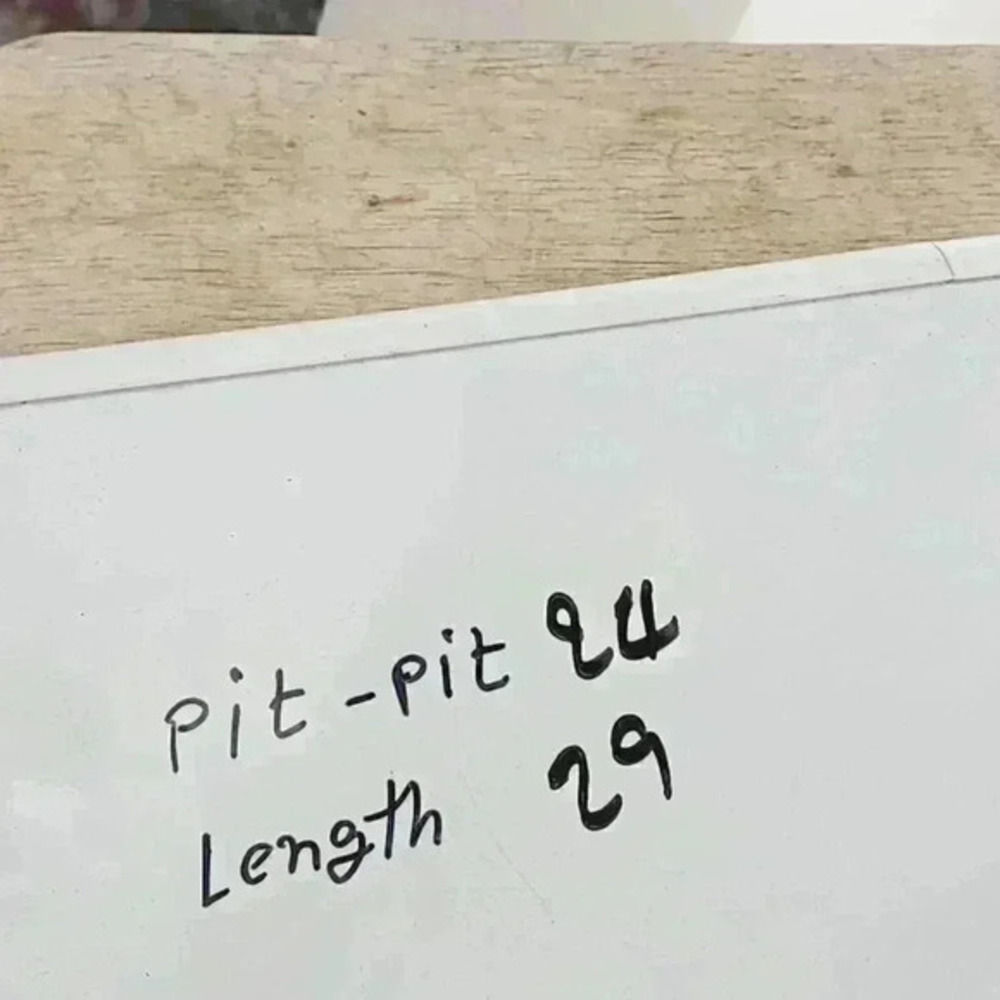 Pit-pit 24
Length 29